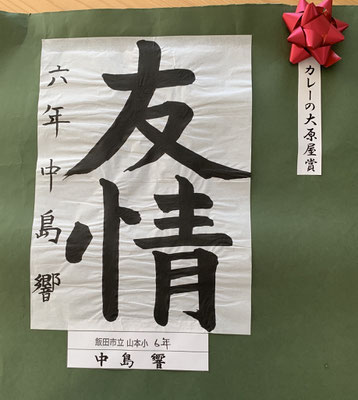 カレーの大原屋賞
友情
六年中島響
飯田市立 山本小 6年
中島響